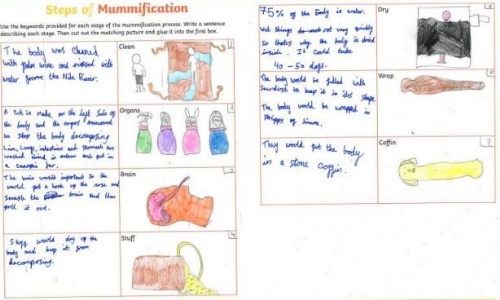 Steps of Mummification
Use the keywords provided for each stage of the mummification process. Write a sentence
describing each stage. Then cut out the matching picture and glue it into the first box.
The body was cleaned
with palm wine and rinsed with
water from the Nile River.
Clean
1
A cut is made on the left side of
the body and the organs removed
to stop the body decomposing
Liver, lungs, intestines and stomach are
washed dried in natron and put in
a canopic jar.
Organs
The brain wasn't important so they
would put a hook up the nose and
smash the brain and then
pull it out.
Brain
Stuff would dry up the
body and keep it from
decomposing.
Stuff
4
75% of the body is water.
Wet things do not rot very quickly
so thats why the body is dried
inside. It could take
40 - 50 days.
Dry
The body would be filled with
sawdust to keep it in its shape
The body would be wrapped in
strips of linen.
Wrap
They would put the body
in a stone coffin.
Coffin